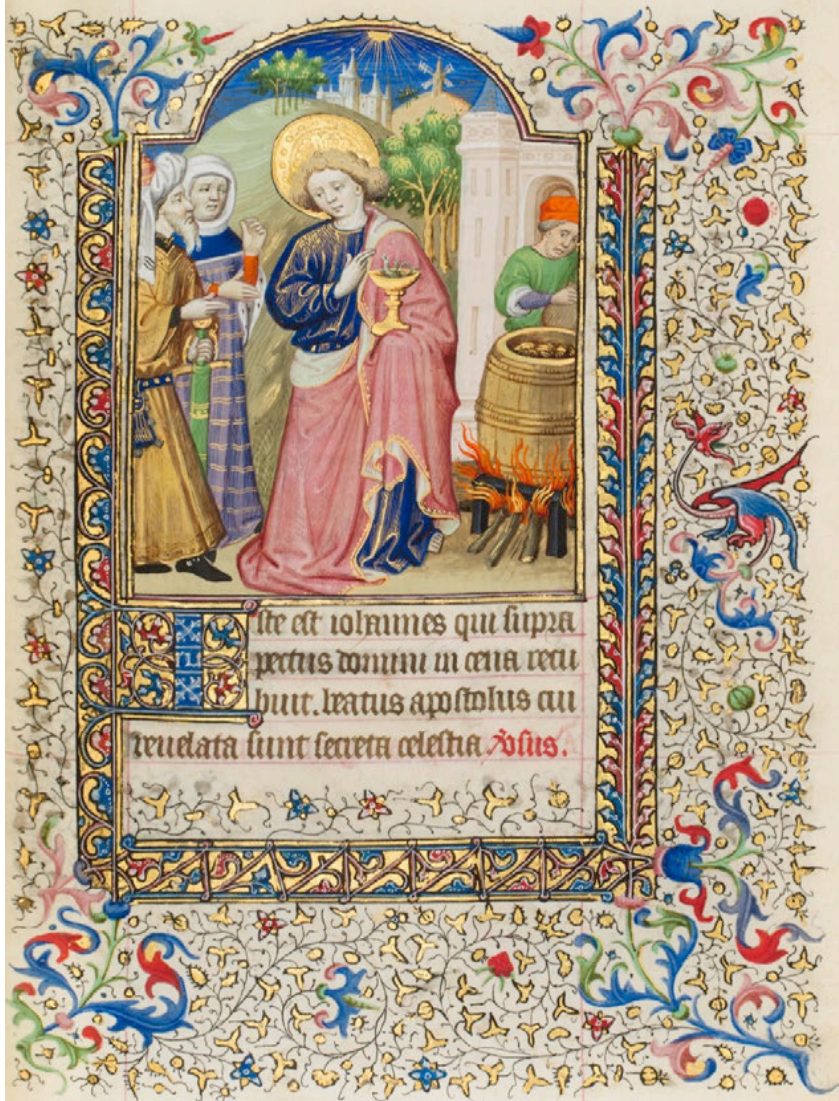 Iste est iohannes qui supra
pectus domini in cena recu
buit. beatus apostolus cui
reuelata sunt secreta celestia